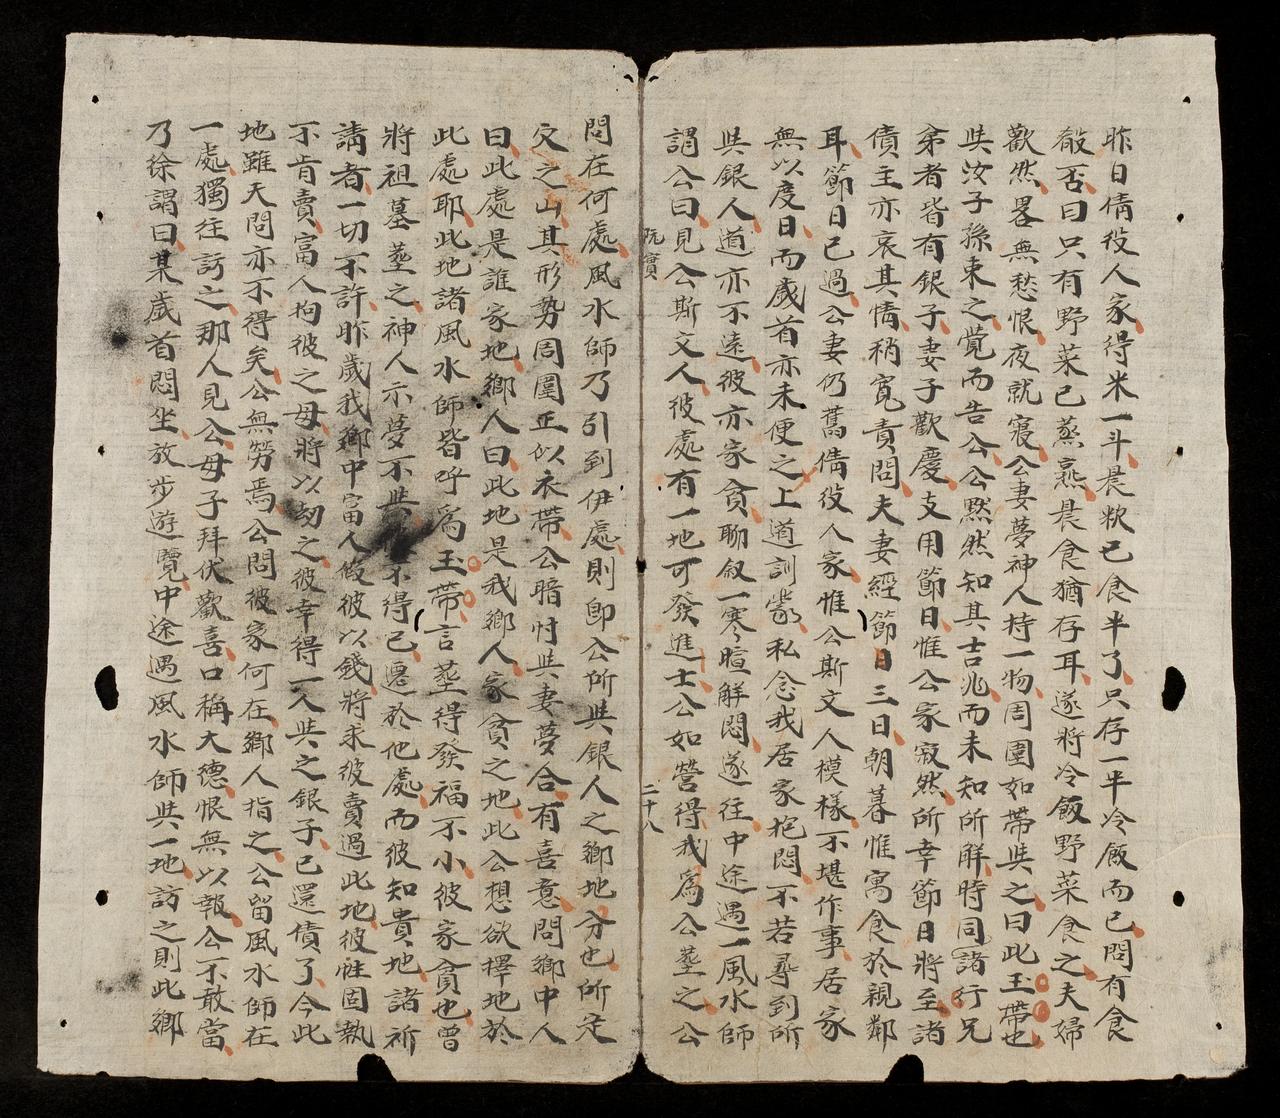 昨日倩役人家得米一斗晨炊已食半了只存一半冷飯而已問有食
殽否曰只有野菜已蒸𤍠晨食猶存耳遂將冷飯野菜食之夫婦
歡然畧無愁恨夜就寢公妻夢神人持一物周圍如帶𢌌之曰此玉帶也
𢌌汝子孫束之覺而告公公黙然知其吉兆而未知所解時同諸行兄
弟者皆有銀子妻子歡慶支用節日惟公家寂然所幸節日將至諸
債主亦哀其情稍寬責問夫妻經節日三日朝暮惟寓食於親鄰
耳節日已過公妻仍舊倩役人家惟公斯文人模樣不堪作事居家
無以度日而歲首亦未便之上道訓蒙私念我居家抱悶不若尋到所
𢌌銀人道亦不遠彼亦家貧聊叙一寒暄解悶遂往中途遇一風水師
謂公曰見公斯文人彼處有一地可發進士公如營得我爲公塟之公
阮寔
二十八
問在何處風水師乃引到伊處則即公所𢌌銀人之鄉地分也所定
之山其形勢周圍正似衣帶公暗忖𢌌妻夢合有喜意問鄉中人
曰此處是誰家地鄉人曰此地是我鄉人家貧之地此公想欲擇地於
此處耶此地諸風水師皆呼爲玉帶言塟得發福不小彼家貧也曾
將祖墓塟之神人示夢不𢌌不得已遷於他處而彼知貴地諸祈
請者一切不許昨歲我鄉中富人假彼以錢將求彼賣過此地彼性固執
不肯賣富人拘彼之母將以刼之彼幸得一人𢌌之銀子已還債了今此
地雖天問亦不得矣公無勞焉公問彼家何在鄉人指之公留風水師在
一處獨往訪之那人見公母子拜伏歡喜口稱大德恨無以報公不敢當
乃徐謂曰某歲首悶坐放步遊覽中途遇風水師𢌌一地訪之則此鄉